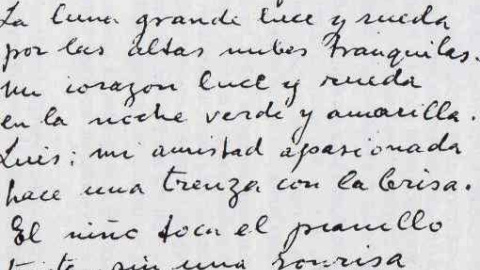 La luna grande luce y rueda
por las altas nubes tranquilas.
mi corazon luce y rueda
en la noche verde y amarilla.
Luis: mi amistad apasionada
hace una trenza con la brisa.
El niño toca el pianillo
triste, sin una sonrisa